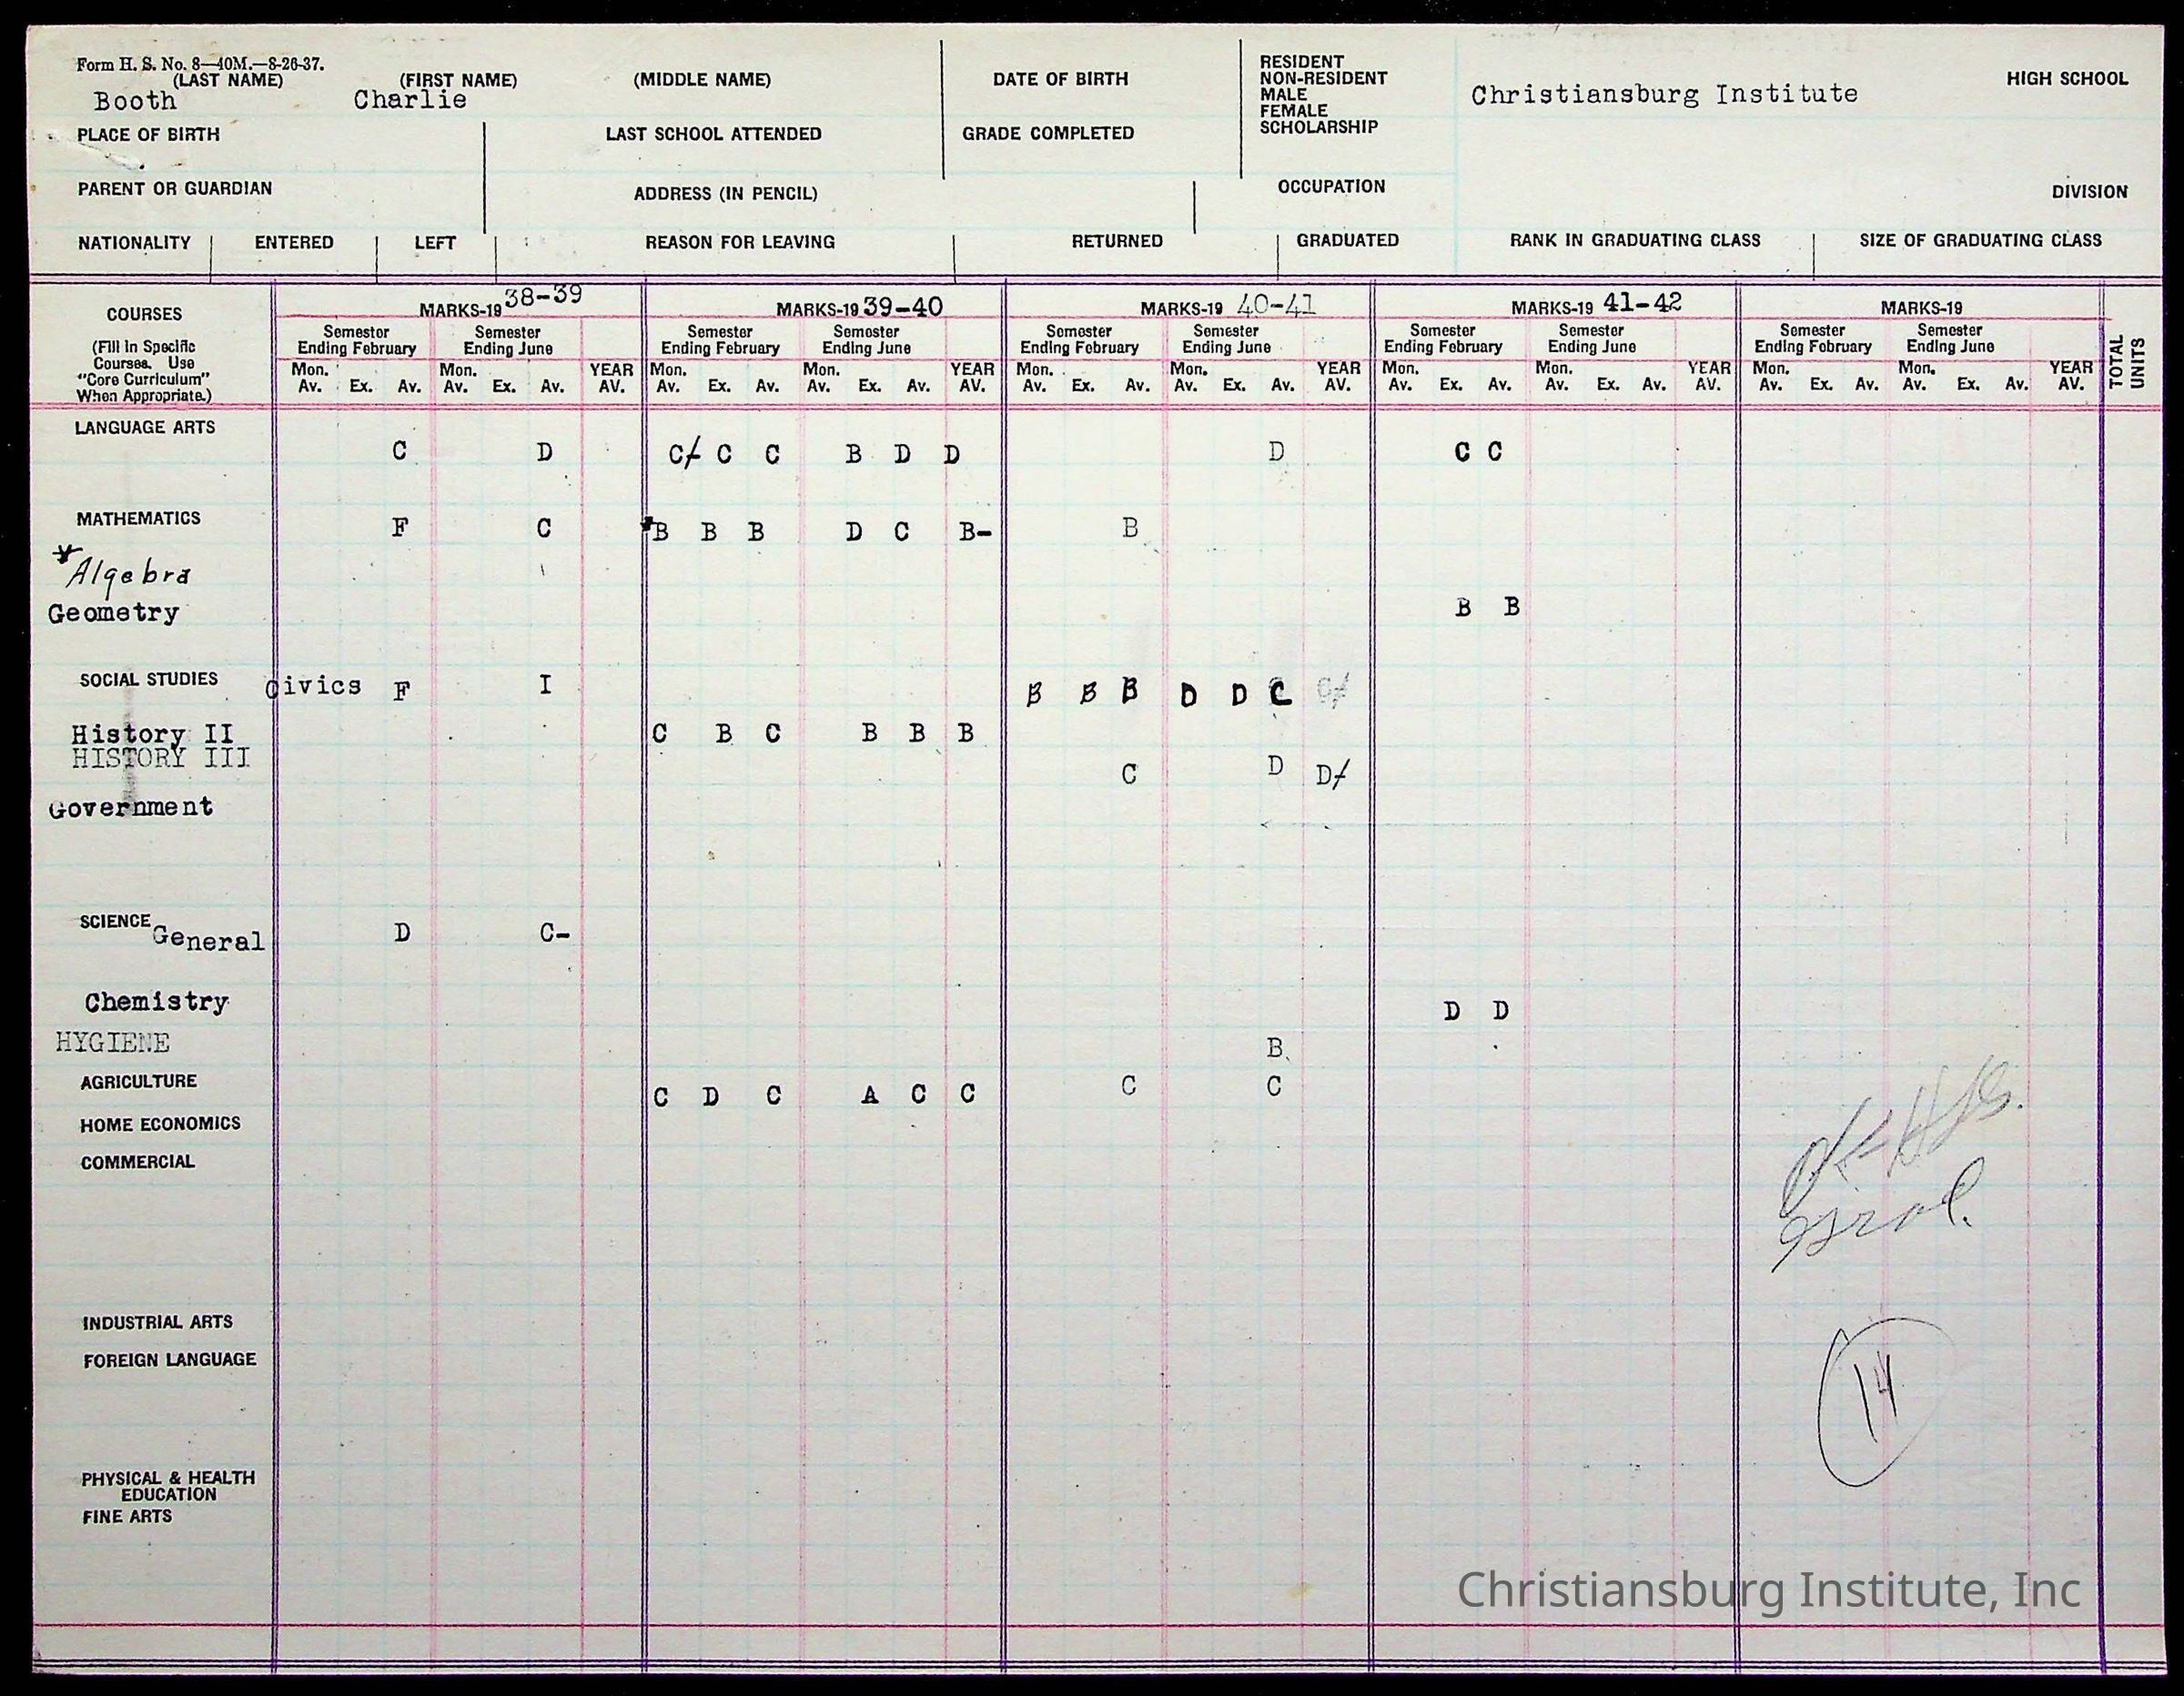 Form H. S. No. 8—40M.—8-26-37.
(LAST NAME) (FIRST NAME) (MIDDLE NAME) DATE OF BIRTH
Booth Charlie
RESIDENT
NON-RESIDENT
MALE
FEMALE
SCHOLARSHIP
Christiansburg Institute HIGH SCHOOL
PLACE OF BIRTH LAST SCHOOL ATTENDED GRADE COMPLETED
PARENT OR GUARDIAN ADDRESS (IN PENCIL) OCCUPATION DIVISION
NATIONALITY ENTERED LEFT REASON FOR LEAVING RETURNED GRADUATED RANK IN GRADUATING CLASS SIZE OF GRADUATING CLASS
COURSES
(Fill in Specific
Courses. Use
"Core Curriculum"
When Appropriate.)
MARKS-19 38-39 MARKS-19 39-40 MARKS-19 40-41 MARKS-19 41-42 MARKS-19
Semester Semester Semester Semester Semester Semester Semester Semester Semester Semester
Ending February Ending June Ending February Ending June Ending February Ending June Ending February Ending June Ending February Ending June
Mon. Mon. YEAR Mon. Mon. YEAR Mon. Mon. YEAR Mon. Mon. YEAR Mon. Mon. YEAR
Av. Ex. Av. Av. Ex. Av. AV. Av. Ex. Av. Av. Ex. Av. AV. Av. Ex. Av. Av. Ex. Av. AV. Av. Ex. Av. Av. Ex. Av. AV. Av. Ex. Av. Av. Ex. Av. AV.
TOTAL
UNITS
LANGUAGE ARTS
C D C/ C C B D D D C C
MATHEMATICS
F C *B B B D C B- B
*Algebra
Geometry B B
SOCIAL STUDIES Civics F I B B B D D C C/
History II C B C B B B
HISTORY III C D D/
Government
SCIENCE General D C-
Chemistry D D
HYGIENE B
AGRICULTURE C D C A C C C C
HOME ECONOMICS
COMMERCIAL
INDUSTRIAL ARTS
FOREIGN LANGUAGE
14
PHYSICAL & HEALTH
EDUCATION
FINE ARTS
Christiansburg Institute, Inc